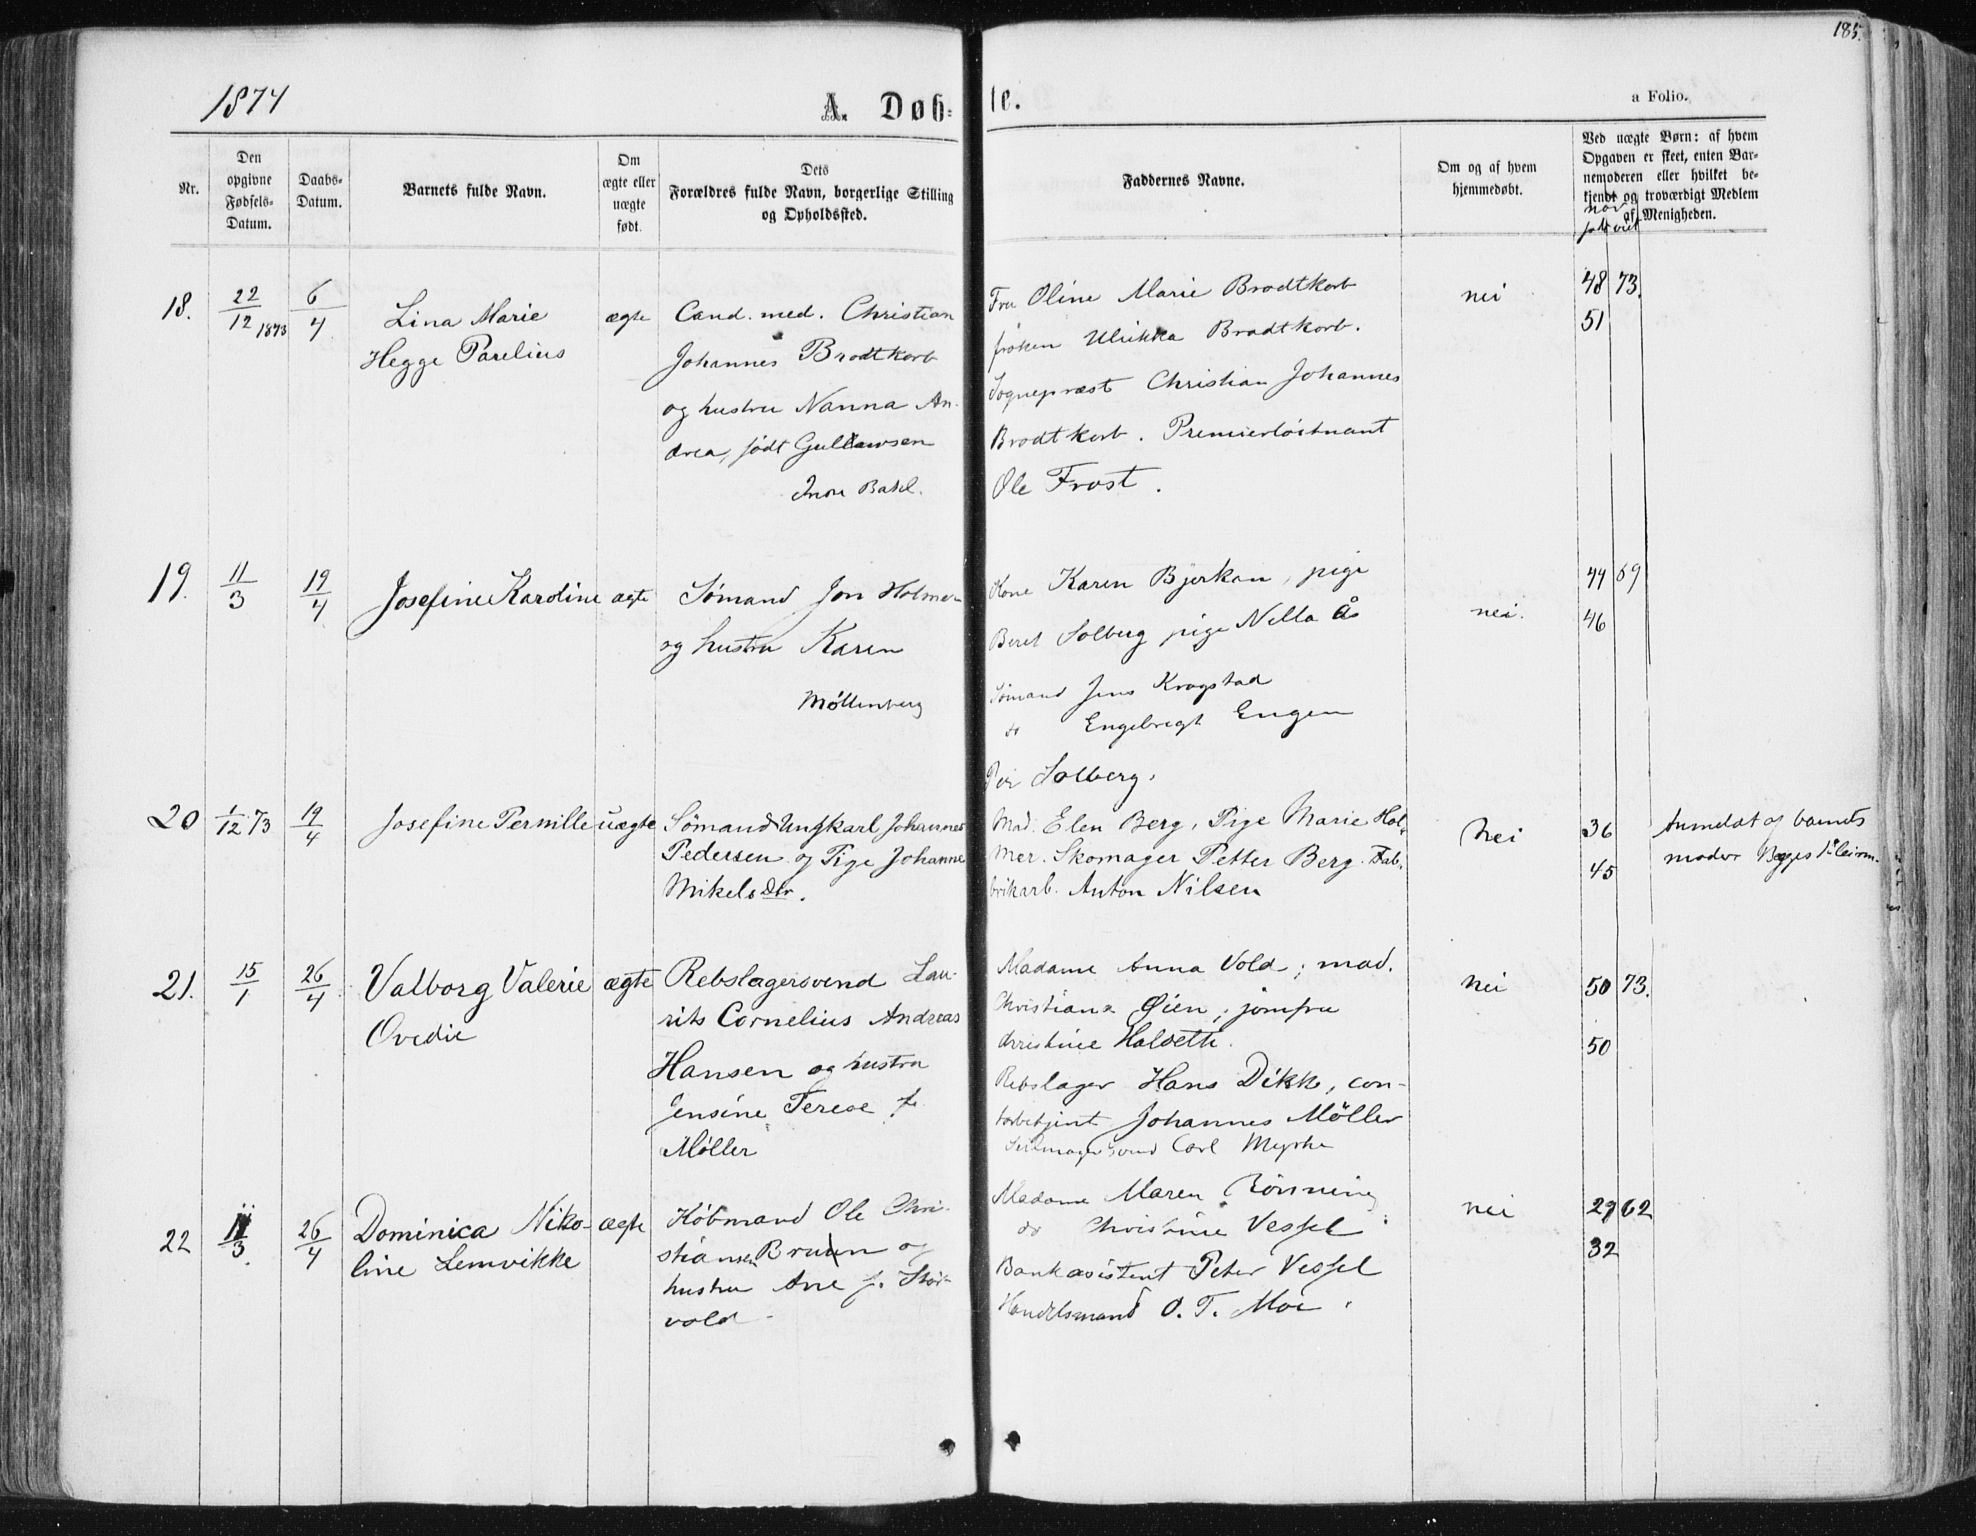 185.
1874
A. Døb-
te.
a Folio.
Nr.
Den
opgivne
Fødsels-
Datum.
Daabs-
Datum.
Barnets fulde Navn.
Om
ægte eller
uægte
født.
Dets
Forældres fulde Navn, borgerlige Stilling
og Opholdssted.
Faddernes Navne.
Om og af hvem
hjemmedøbt.
Ved uægte Børn: af hvem
Opgaven er skeet, enten Bar-
nemoderen eller hvilket be-
kjendt og troværdigt Medlem
af Menigheden.
18.
22/12 1873
6/4
Lina Marie
Hegge Parelius
ægte
Cand. med. Christian
Johannes Brodtkorb
og hustru Nanna An-
drea, født
Fru Oline Marie Brodtkorb
frøken Ulrikka Brodtkorb.
Sognepræst Christian Johannes
Brodtkorb. Premierløitnant
Ole Frost.
nei
48 73.
51
19.
11/3
19/4
Josefine Karoline
ægte
Sømand Jon Holmen
og hustru Karen
Møllenberg
Kone Karen Bjerkan, pige
Beret Solberg pige Nella Ås
Sømand Jens Krogstad
do Engebregt Engen
Per Solberg.
nei.
44 69
46
20
1/12 73
19/4
Josefine Pernille
uægte
Sømand Ungkarl Johannes
Pedersen og Pige Johanne
Mikelsdtr.
Mad. Elen Berg, Pige Marie Hol-
mer. Skomager Petter Berg. Fab-
brikarb. Anton Nilsen
nei
36
45
Anmeldt af barnets
moder
21.
15/1
26/4
Valborg Valerie
Ovedie
ægte
Rebslagersvend Lau-
rits Cornelius Andreas
Hansen og hustru
Jensine Terese f.
Møller
Madame Anna Vold, mad.
Christiana Øien, jomfru
Halseth.
Rebslager Hans Dikk, con-
torbetjent Johannes Møller
Seilmagersvend Carl Myrhe
nei
50 73.
50
22
11/3.
26/4
Dominica Niko-
line Lemvikke
ægte
Købmand Ole Chri-
stiansen Bruun og
hustru Ane f. Stør-
vold
Madame Maren Rønning
do Christine Vessel
Bankasistent Peter Vessel
Handelsmand O. T. Moe.
nei
29 62
32